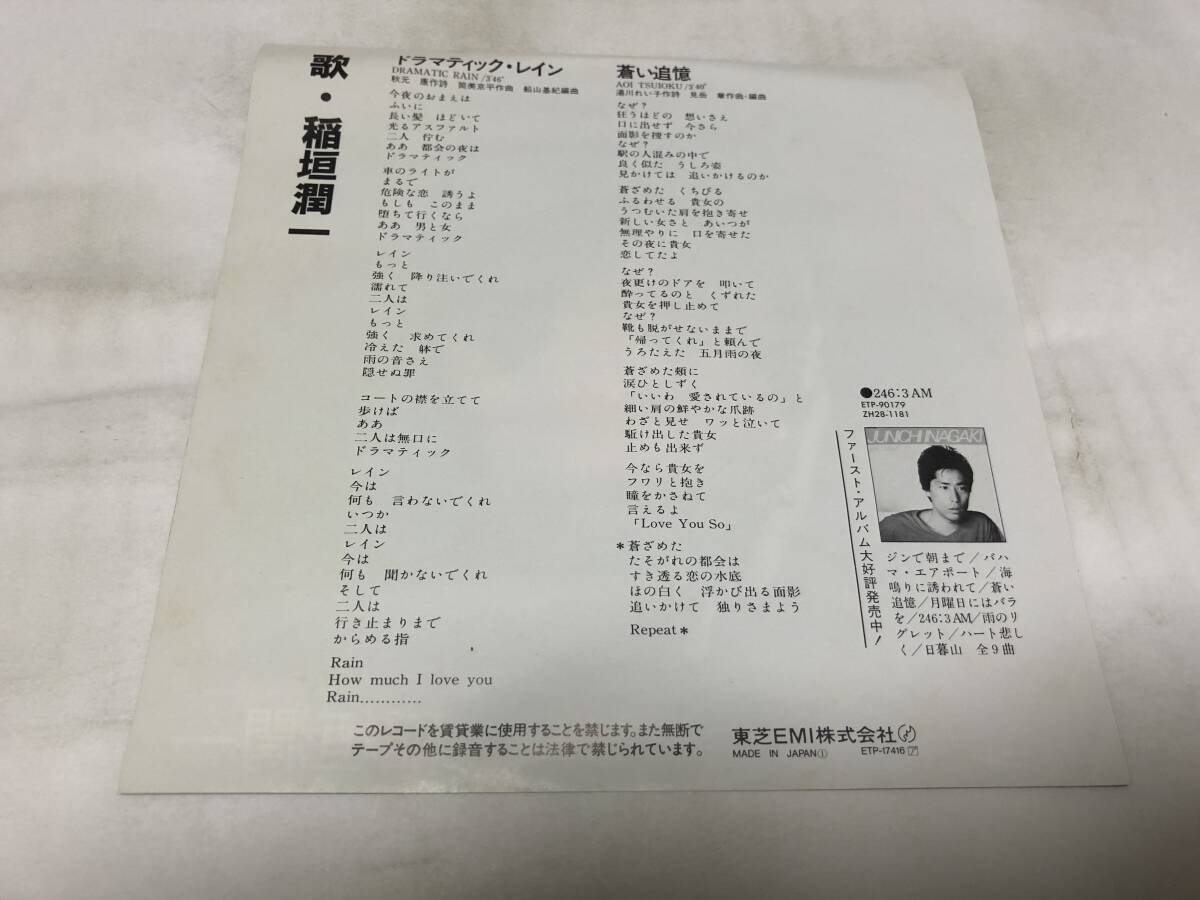 歌・稲垣潤一
ドラマティック・レイン
DRAMATIC RAIN/3'46"
秋元 康作詩 筒美京平作曲 船山基紀編曲
今夜のおまえは
ふいに
長い髪 ほどいて
光るアスファルト
二人 佇む
ああ 都会の夜は
ドラマティック
車のライトが
まるで
危険な恋 誘うよ
もしも このまま
堕ちて行くなら
ああ 男と女
ドラマティック
レイン
もっと
強く 降り注いでくれ
濡れて
二人は
レイン
もっと
強く 求めてくれ
冷えた 躰で
雨の音さえ
隠せぬ罪
コートの襟を立てて
歩けば
ああ
二人は無口に
ドラマティック
レイン
今は
何も 言わないでくれ
いつか
二人は
レイン
今は
何も 聞かないでくれ
そして
二人は
行き止まりまで
からめる指
Rain
How much I love you
Rain............
蒼い追憶
AOI TSUIOKU/3'40"
湯川れい子作詩 見岳 章作曲・編曲
なぜ?
狂うほどの 想いさえ
口に出せず 今さら
面影を捜すのか
なぜ?
駅の人混みの中で
良く似た うしろ姿
見かけては 追いかけるのか
蒼ざめた くちびる
ふるわせる 貴女の
うつむいた肩を抱き寄せ
新しい女さと あいつが
無理やりに 口を寄せた
その夜に貴女
恋してたよ
なぜ?
夜更けのドアを 叩いて
酔ってるのと くずれた
貴女を押し止めて
なぜ?
靴も脱がせないままで
「帰ってくれ」と頼んで
うろたえた 五月雨の夜
蒼ざめた頬に
涙ひとしずく
「いいわ 愛されているの」と
細い肩の鮮やかな爪跡
わざと見せ ワッと泣いて
駈け出した貴女
止めも出来ず
今なら貴女を
フワリと抱き
瞳をかさねて
言えるよ
「Love You So」
*蒼ざめた
たそがれの都会は
すき透る恋の水底
ほの白く 浮かび出る面影
追いかけて 独りさまよう
Repeat*
●246:3AM
ETP-90179
ZH28-1181
JUNICHI INAGAKI
ファースト・アルバム大好評発売中!
ジンで朝まで/バハ
マ・エアポート/海
鳴りに誘われて/蒼い
追憶/月曜日にはバラ
を/246:3AM/雨のリ
グレット/ハート悲し
く/日暮山 全9曲
このレコードを賃貸業に使用することを禁じます。また無断で
テープその他に録音することは法律で禁じられています。
東芝EMI株式会社
MADE IN JAPAN①
ETP-17416 ア